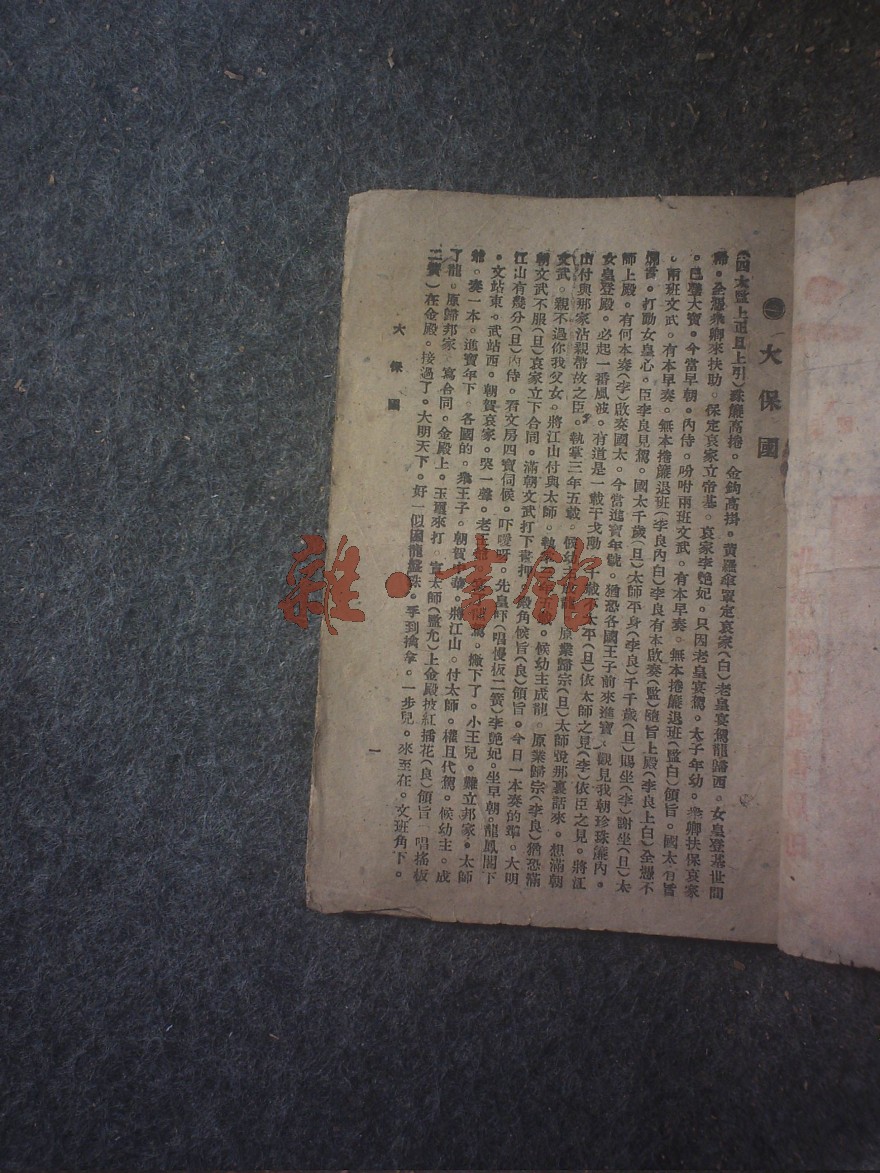 大保國
(四太監上正旦上引)珠簾高捲。金鉤高掛。黃羅傘罩定哀家(白)老皇宴駕龍歸西。女皇登基世間
稀。全憑衆卿來扶助。保定哀家立帝基。哀家李艶妃。只因老皇宴駕。太子年幼。衆卿扶保哀家
。已登大寶。今當早朝。內侍。吩咐兩班文武。有本早奏。無本捲簾退班(監白)領旨。國太有旨
。兩班文武。有本早奏。無本捲簾退班(李良內白)李良有本啟奏(監)隨旨上殿(李良上白)全憑不
言。打動女皇心。臣李良見駕。國太千歲(旦)太師平身(李良)千千歲(旦)賜坐(李)謝坐(旦)太
師上殿。有何本奏(李)啟奏國太。今當進寶年號。猶恐各國王子前來進寶。觀見我朝珍珠簾內。
女皇登殿。必起一番風波。有道是一載干戈動。十載不太平(旦)依太師之見(李)依臣之見。將江
山付與那家沾親帶故之臣。執掌三年五載。候幼主成龍。原業歸宗(旦)太師說那裏話來。想滿朝
文武。親不過你我父女。將江山付與太師。執掌。候幼主成龍。原業歸宗(李良)猶恐滿
朝文武不服(旦)哀家立下合同。滿朝文武打下畫押。殿角候旨(良)領旨。今日一本奏的準。大明
江山有幾分(旦)內侍。看文房四寶伺候。吓噯呀。先皇吓(唱慢板二簧)李艶妃。坐早朝。龍鳳閣下
。文站東。武站西。朝賀哀家。哭一聲。老王爺。駕。撇下了。小王兒。難立邦家。太師
爺。奏一本。進寶年下。各國的。衆王子。朝賀中華。將江山。付太師。權且代駕。候幼主。成
了龍。原歸邦家。寫合同。金殿上。玉璽來打。宣太師(監允)上金殿披紅插花(良)領旨(唱搖板
二簧)在金殿。接過了。大明天下。好一似困龍盤珠。手到擒拿。一步兒。來至在。文班角下。
大保國
一
雜·書館